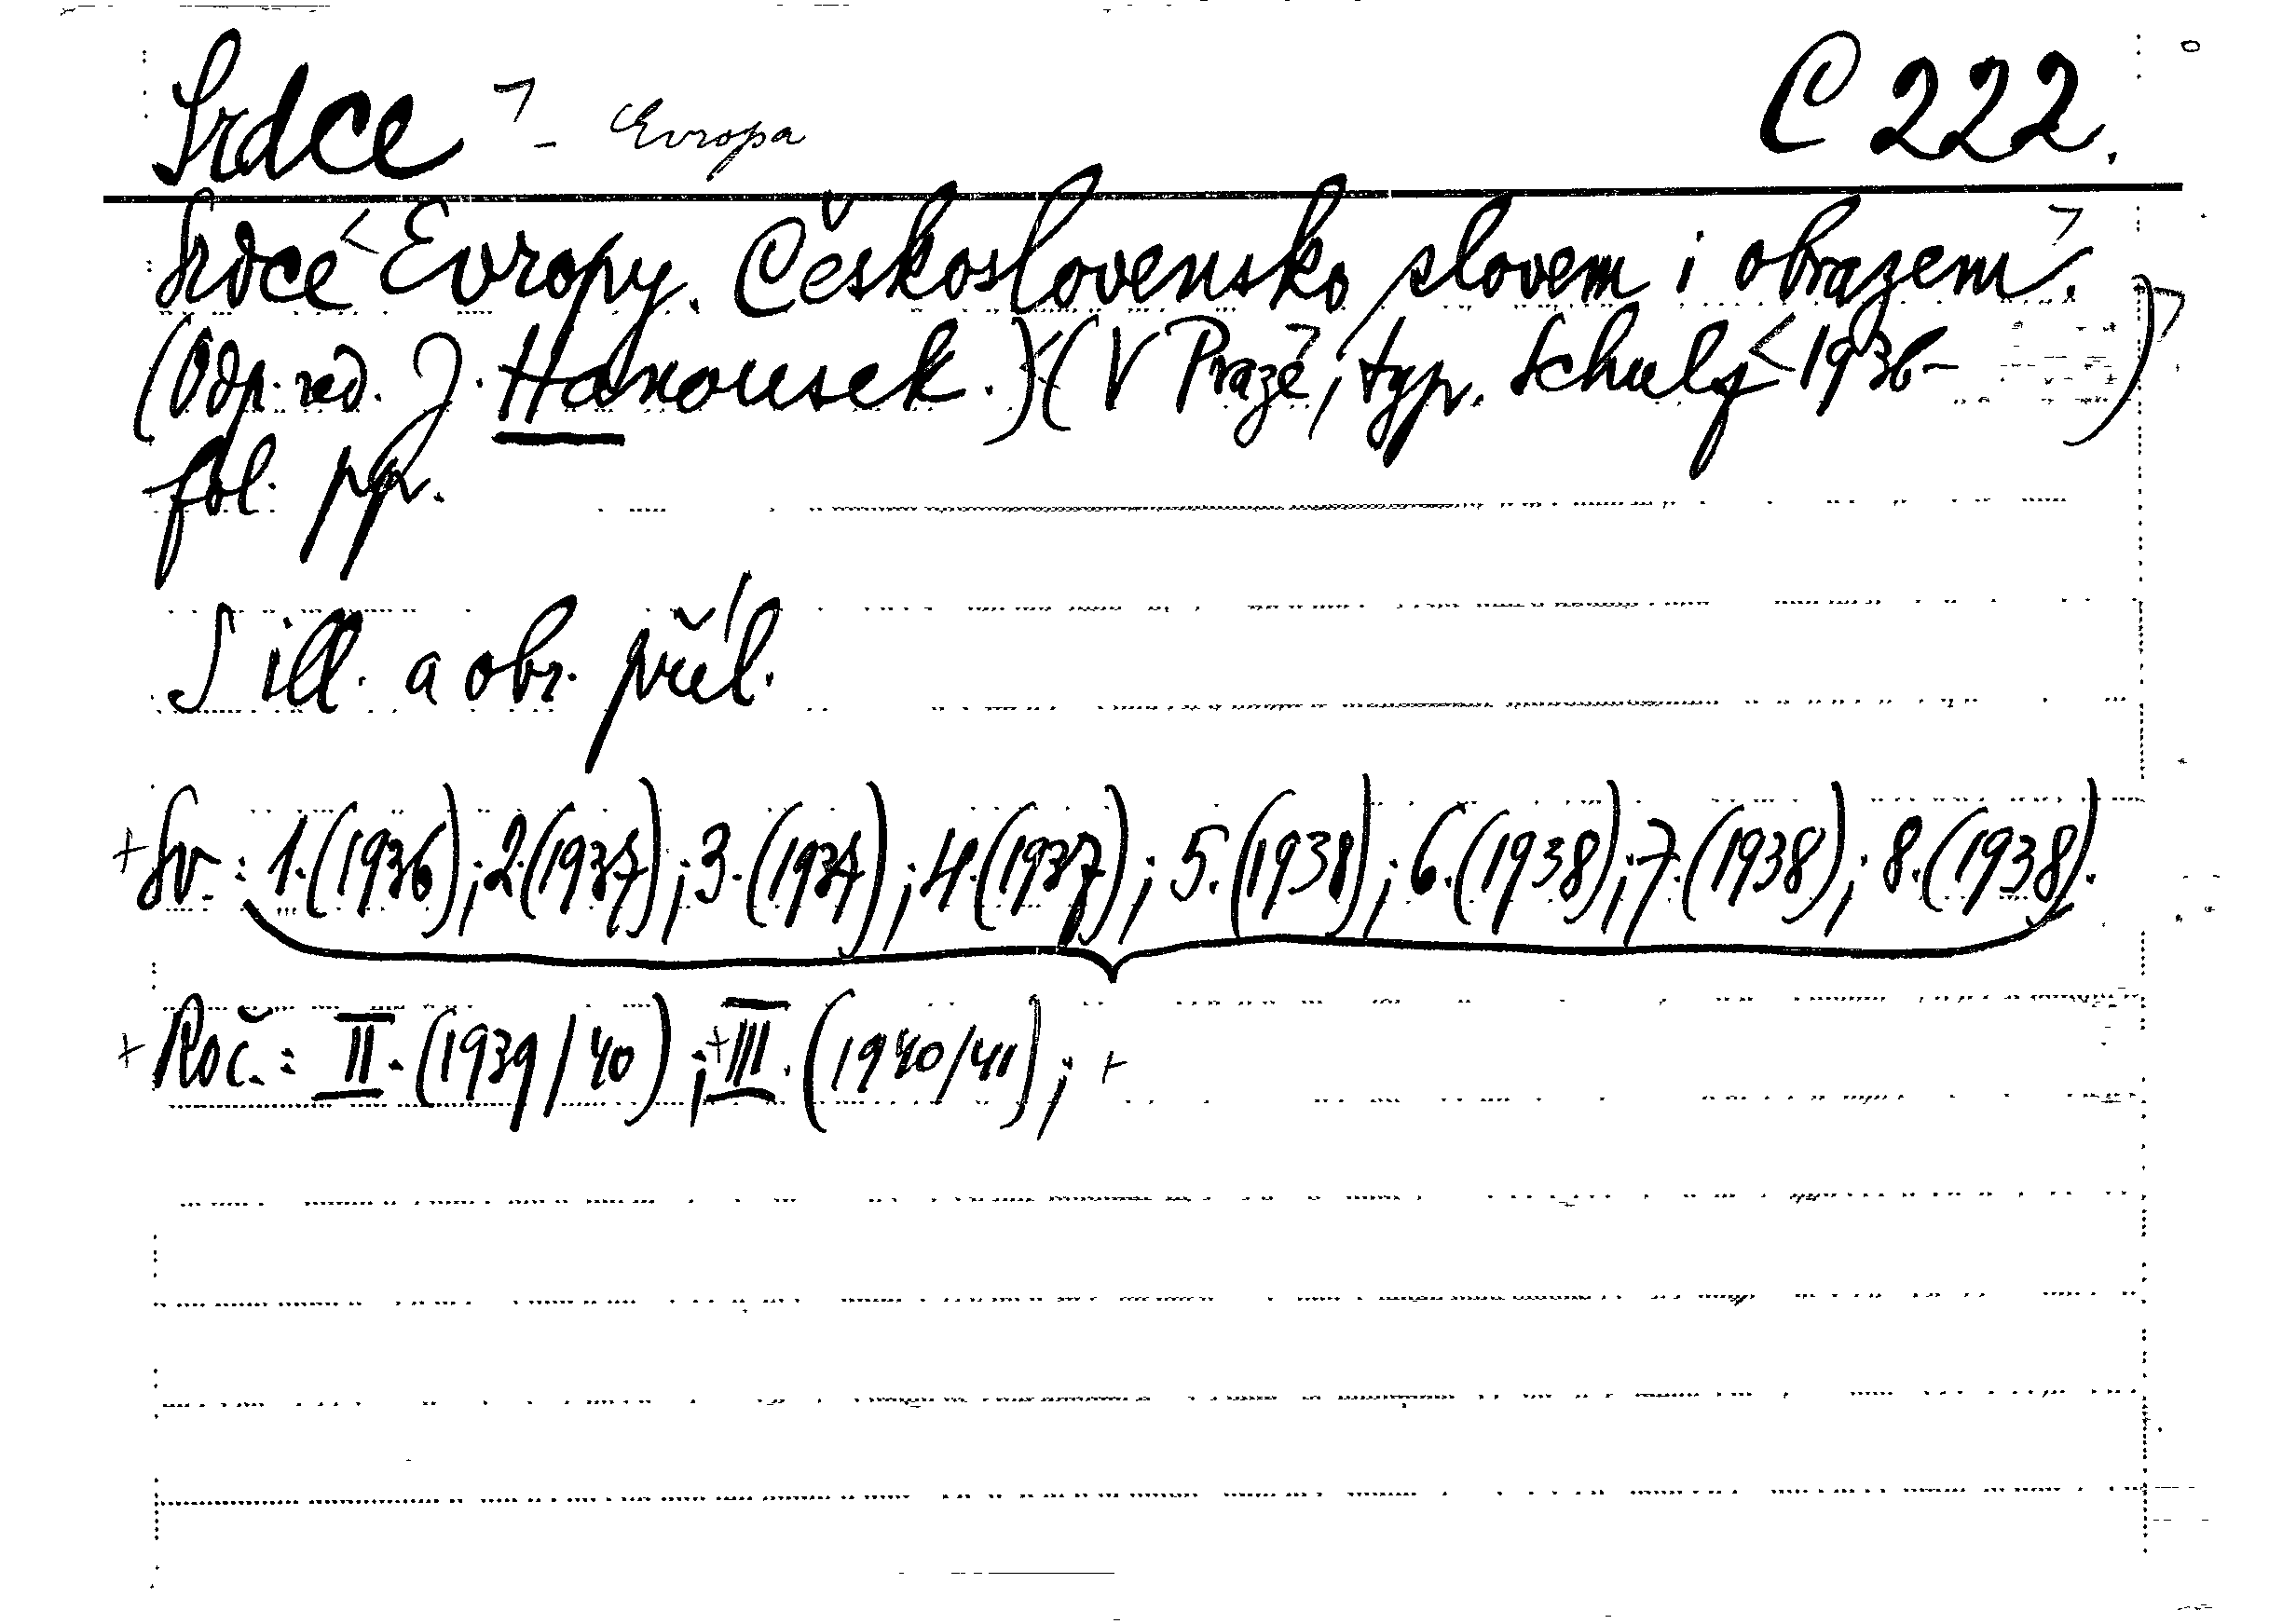 Srdce - Evropa C 222.
Srdce Evropy. Československo slovem i obrazem.
(Odp. red. J. Hanousek.) (V Praze, typ. Schulz 1936- )
fol. pp.
S ill. a obr. příl.
+ Sv.: 1. (1936); 2. (1937); 3. (1937); 4. (1937); 5. (1938); 6. (1938); 7. (1938); 8. (1938).
+ Roč.: II. (1939/40); + III. (1940/41); +